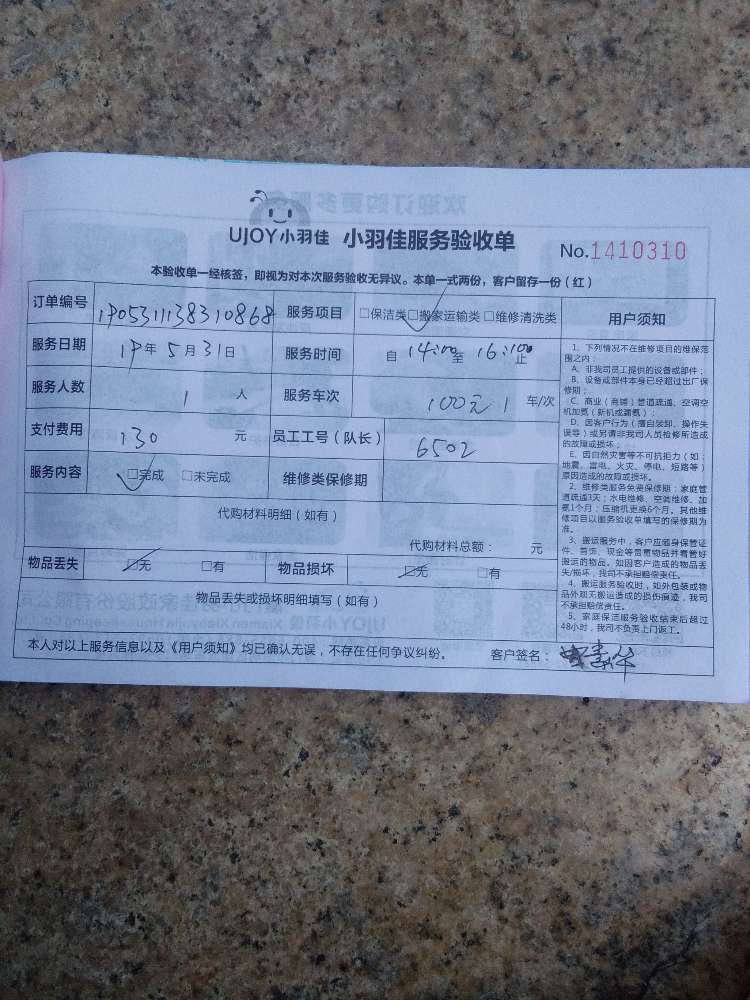 UJOY小羽佳 小羽佳服务验收单 No.1410310
本验收单一经核签，即视为对本次服务验收无异议。本单一式两份，客户留存一份（红）
订单编号 1905311138310868 服务项目 □保洁类□搬家运输类 □维修清洗类
服务日期 19年5月31日 服务时间 自 14:00 至 16:00 止
服务人数 1 人 服务车次 100元 1 车/次
支付费用 130 元 员工工号（队长） 6502
服务内容 □完成 □未完成 维修类保修期
代购材料明细（如有）
代购材料总额： 元
物品丢失 □无 □有 物品损坏 □无 □有
物品丢失或损坏明细填写（如有）
本人对以上服务信息以及《用户须知》均已确认无误，不存在任何争议纠纷。 客户签名：
用户须知
1、下列情况不在维修项目的维保范
围之内：
A、非我司员工提供的设备或部件；
B、设备或部件本身已经超过出厂保
修期；
C、商业（商铺）管道疏通、空调空
机加氨（新机或漏氨）；
D、因客户行为（擅自装卸、操作失
误等）或另请非我司人员检修所造成
的故障或损坏；
E、因自然灾害等不可抗拒力（如：
地震、雷电、火灾、停电、短路等）
原因造成的故障或损坏。
2、维修类服务免费保修期：家庭管
道疏通3天；水电维修、空调维修、加
氨1个月；压缩机更换6个月。其他维
修项目以服务验收单填写的保修期为
准。
3、搬运服务中，客户应随身保管证
件、首饰、现金等贵重物品并看管好
搬运的物品。如因客户造成的物品丢
失/损坏，我司不承担赔偿责任。
4、搬运服务验收时，如外包装或物
品外观无搬运造成的损伤痕迹，我司
不承担赔偿责任。
5、家庭保洁服务验收结束后超过
48小时，我司不负责上门返工。
欢迎订购更多服务